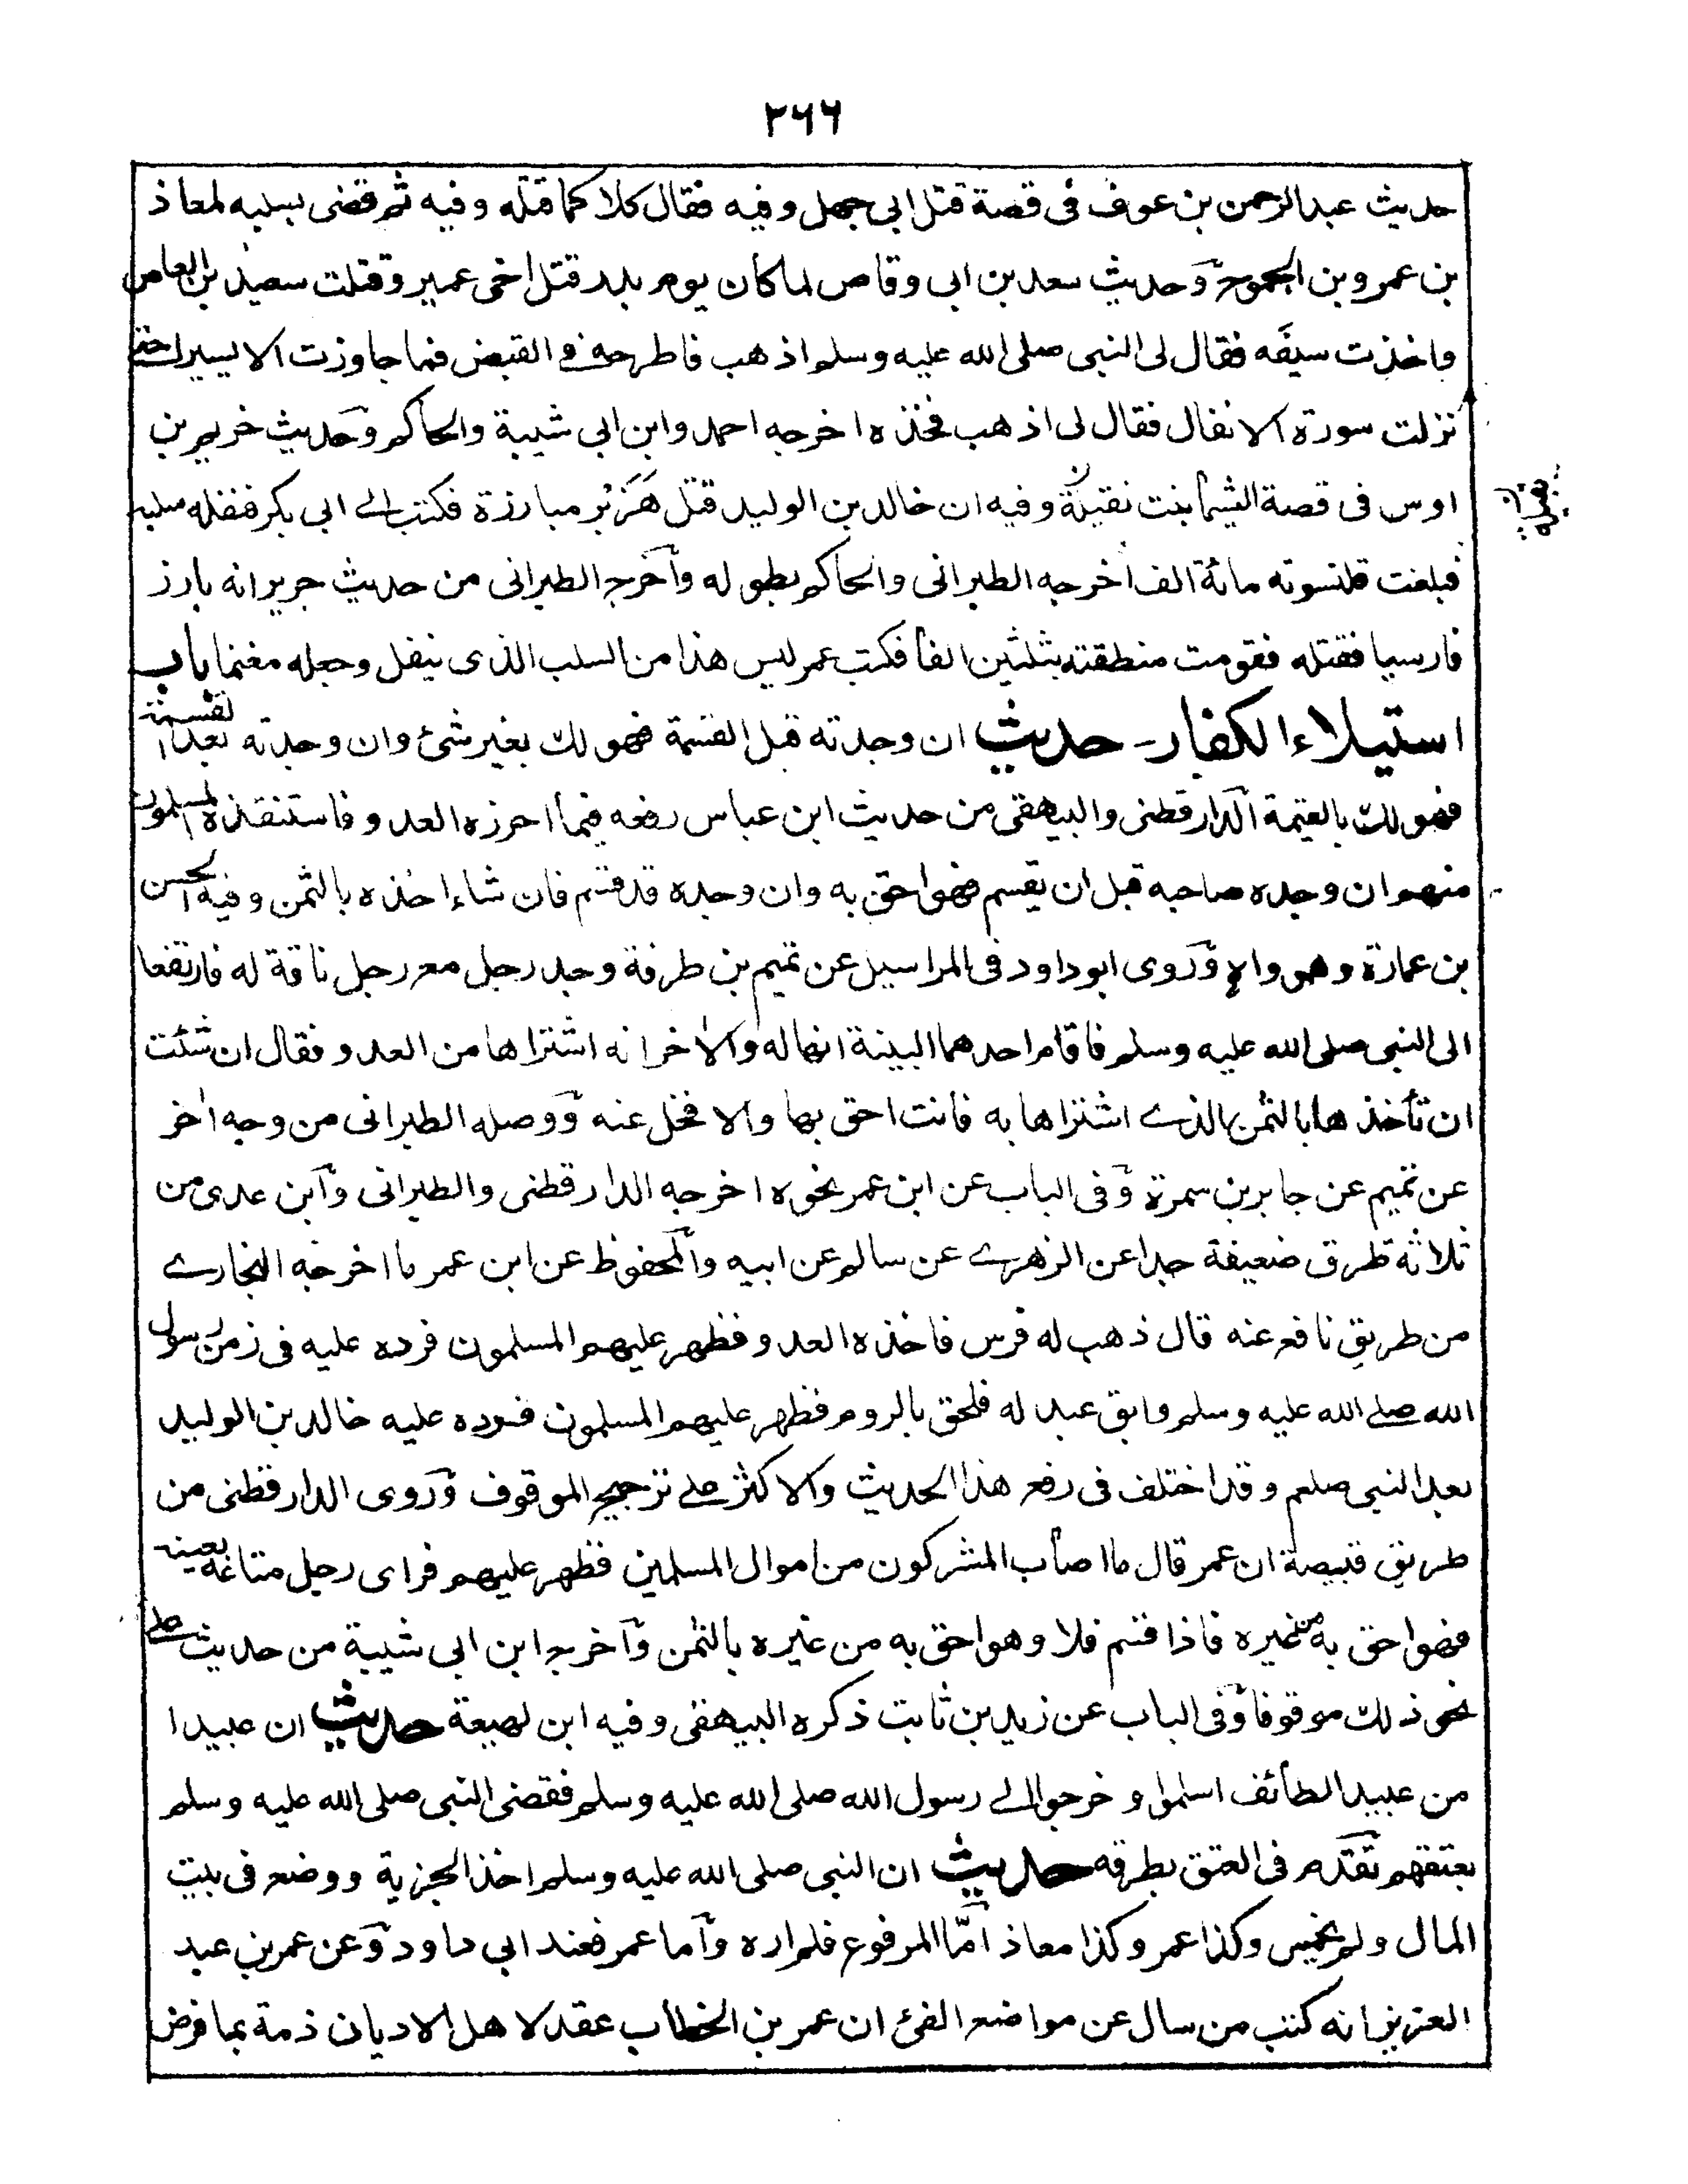 ٢٦٦
حديث عبد الرحمن بن عوف فى قصة قتل ابى جهل وفيه فقال كلا كما قتله وفيه ثم قضى بسلبه لمعاذ
بن عمرو بن الجموح وحديث سعد بن ابى وقاص لما كان يوم بدر قتل اخى عمير وقتلت سعيد بن العاص
واخذت سيفه فقال لى النبى صلى الله عليه وسلم اذهب فاطرحه فى القبض فما جاوزت الا يسيرا حتى
نزلت سورة الانفال فقال لى اذهب فخذه اخرجه احمد وابن ابى شيبة والحاكم وحديث خريم بن
اوس فى قصة الشيما بنت نقيلة وفيه ان خالد بن الوليد قتل هرمز مبارزة فكتب الى ابى بكر فنفله سلبه
فبلغت قلنسوته مائة الف اخرجه الطبرانى والحاكم بطوله وأخرج الطبرانى من حديث جرير انه بارز
فارسيا فقتله فقومت منطقته بثلثين الفا فكتب عمر ليس هذا من السلب الذى ينفل وجعله مغنما باب
استيلاء الكفار - حديث ان وجدته قبل القسمة فهو لك بغير شئ وان وجدته بعد القسمة
فهو لك بالقيمة الدارقطنى والبيهقى من حديث ابن عباس رفعه فيما احرزه العدو فاستنقذه المسلمون
منهم ان وجده صاحبه قبل ان يقسم فهو احق به وان وجده قد قسم فان شاء اخذه بالثمن وفيه الحسن
بن عمارة وهو واه وروى ابو داود فى المراسيل عن تميم بن طرفة وجد رجل مع رجل ناقة له فارتفعا
الى النبى صلى الله عليه وسلم فاقام احدهما البينة انها له والأخر انه اشتراها من العدو فقال ان شئت
ان تأخذها بالثمن الذے اشتراها به فانت احق بها والا فخل عنه ووصله الطبرانى من وجه أخر
عن تميم عن جابر بن سمرة وفى الباب عن ابن عمر نحوه اخرجه الدارقطنى والطبرانى وابن عدى من
ثلاثة طرق ضعيفة جدا عن الزهرے عن سالم عن ابيه والمحفوظ عن ابن عمر ما اخرجه البخارے
من طريق نافع عنه قال ذهب له فرس فاخذه العدو فظهر عليهم المسلمون فرده عليه فى زمن رسول
الله صلے الله عليه وسلم وابق عبد له فلحق بالروم فظهر عليهم المسلمون فرده عليه خالد بن الوليد
بعد النبى صلعم وقد اختلف فى رفع هذا الحديث والاكثر علے ترجيح الموقوف وروى الدارقطنى من
طريق قبيصة ان عمر قال ما اصاب المشركون من اموال المسلمين فظهر عليهم فراى رجل متاعه بعينه
فهو احق به من غيره فاذا قسم فلا وهو احق به من غيره بالثمن وأخرج ابن ابى شيبة من حديث علے
نحو ذلك موقوفا وفى الباب عن زيد بن ثابت ذكره البيهقى وفيه ابن لهيعة حديث ان عبيدا
من عبيد الطائف اسلموا وخرجوا الے رسول الله صلى الله عليه وسلم فقضى النبى صلى الله عليه وسلم
بعتقهم تقدم فى العتق بطرقه حديث ان النبى صلى الله عليه وسلم اخذ الجزية ووضع فى بيت
المال ولم يخمس وكذا عمر وكذا معاذ أمّا المرفوع فلم اره وأما عمر فعند ابى داود وعن عمر بن عبد
العزيز انه كتب من سال عن مواضع الفئ ان عمر بن الخطاب عقد لاهل الاديان ذمة بما فرض